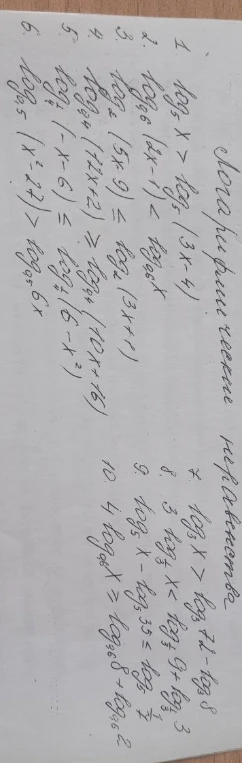 Логарифмические неравенства
1. log₅ x > log₅ (3x - 4)
2. log₀,₆ (2x - 1) < log₀,₆ x
3. log₂ (5x - 9) ≤ log₂ (3x + 1)
4. log₀,₄ (12x + 2) ≥ log₀,₄ (10x + 16)
5. log₇ (-x - 6) ≤ log₇ (6 - x²)
6. log₀,₅ (x² - 27) > log₀,₅ 6x
7. log₃ x > log₃ 72 - log₃ 8
8. 3 log_{1/7} x < log_{1/7} 9 + log_{1/7} 3
9. log₅ x - log₅ 35 ≤ log₅ 1/7
10. 4 log₀,₆ x ≥ log₀,₆ 8 + log₀,₆ 2